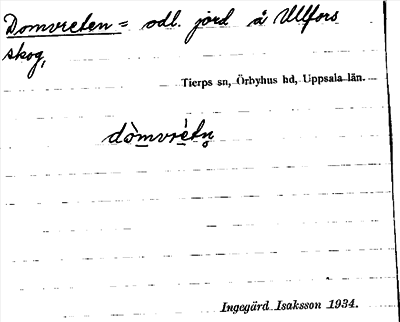 Domvreten = odl. jord å Ullfors
skog,
Tierps sn, Örbyhus hd, Uppsala län.
dòmvrètn̥
Ingegärd Isaksson 1934.